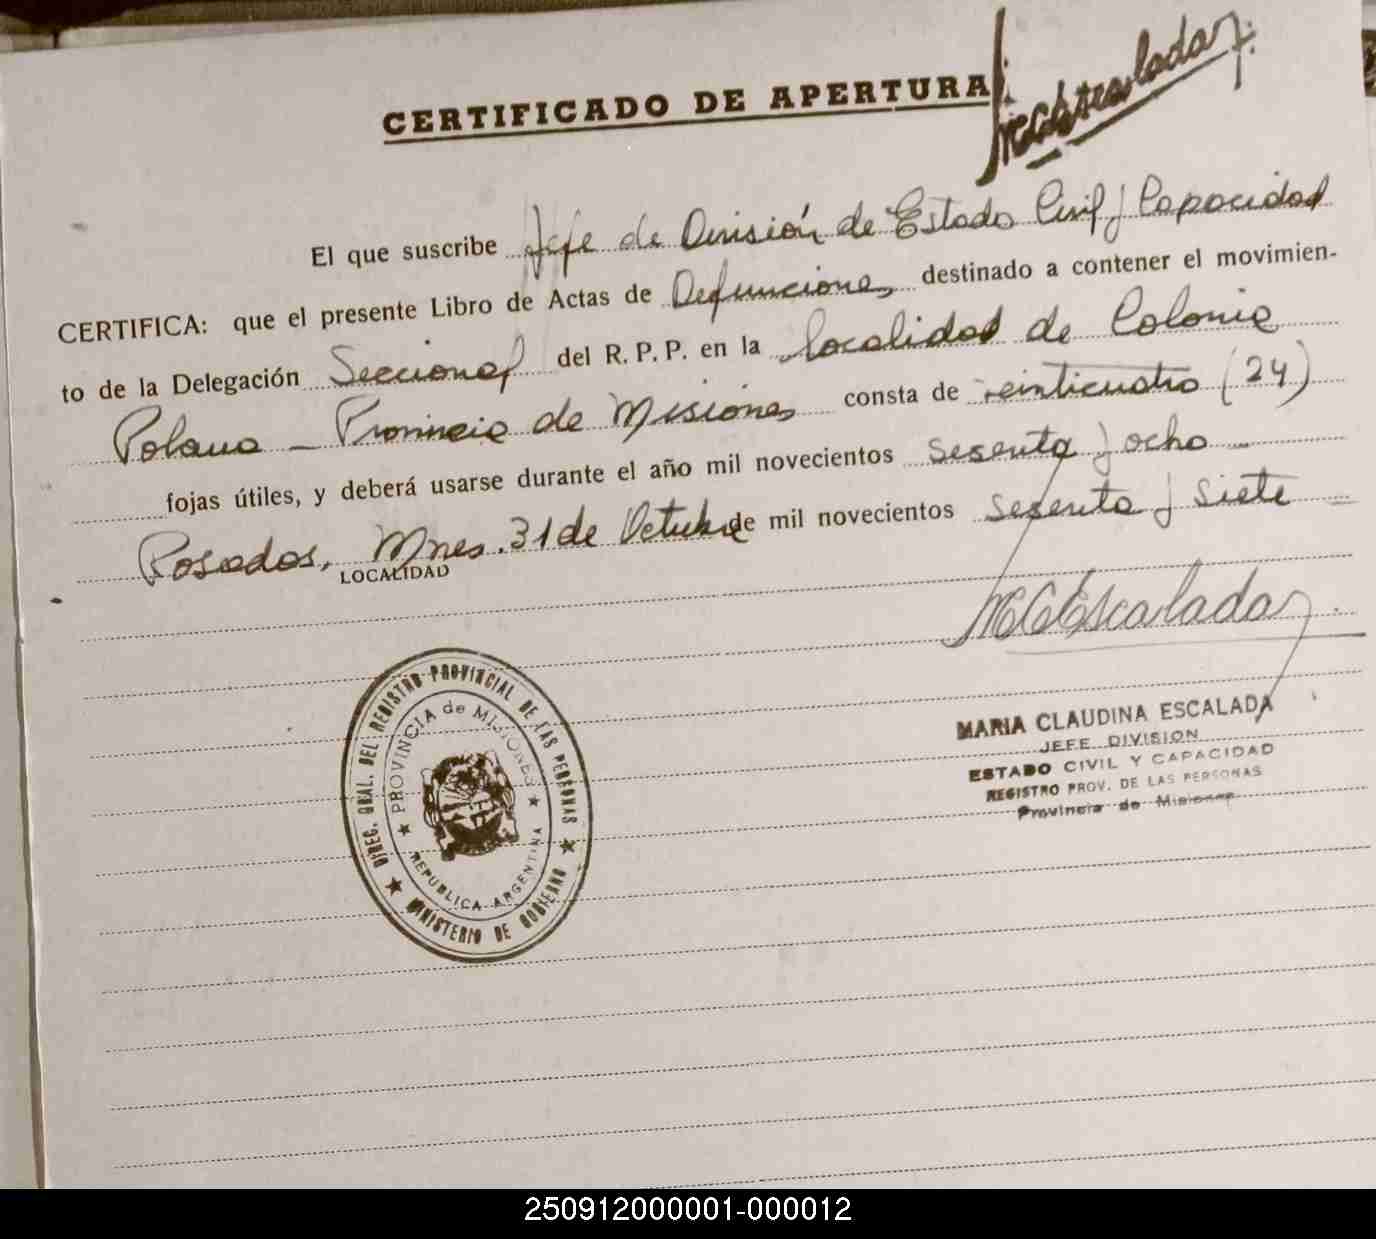 CERTIFICADO DE APERTURA
MCEscalada
El que suscribe Jefe de División de Estado Civil y Capacidad
CERTIFICA: que el presente Libro de Actas de Defunciones destinado a contener el movimien-
to de la Delegación Seccional del R. P. P. en la Localidad de Colonia
Polana - Provincia de Misiones consta de veinticuatro (24)
fojas útiles, y deberá usarse durante el año mil novecientos sesenta y ocho
Posadas, Mnes. 31 de Octubre de mil novecientos sesenta y siete
LOCALIDAD
MCEscalada
DIREC. GRAL. DEL REGISTRO PROVINCIAL DE LAS PERSONAS
PROVINCIA de MISIONES
REPUBLICA ARGENTINA
MINISTERIO DE GOBIERNO
MARIA CLAUDINA ESCALADA
JEFE DIVISION
ESTADO CIVIL Y CAPACIDAD
REGISTRO PROV. DE LAS PERSONAS
Provincia de Misiones
250912000001-000012